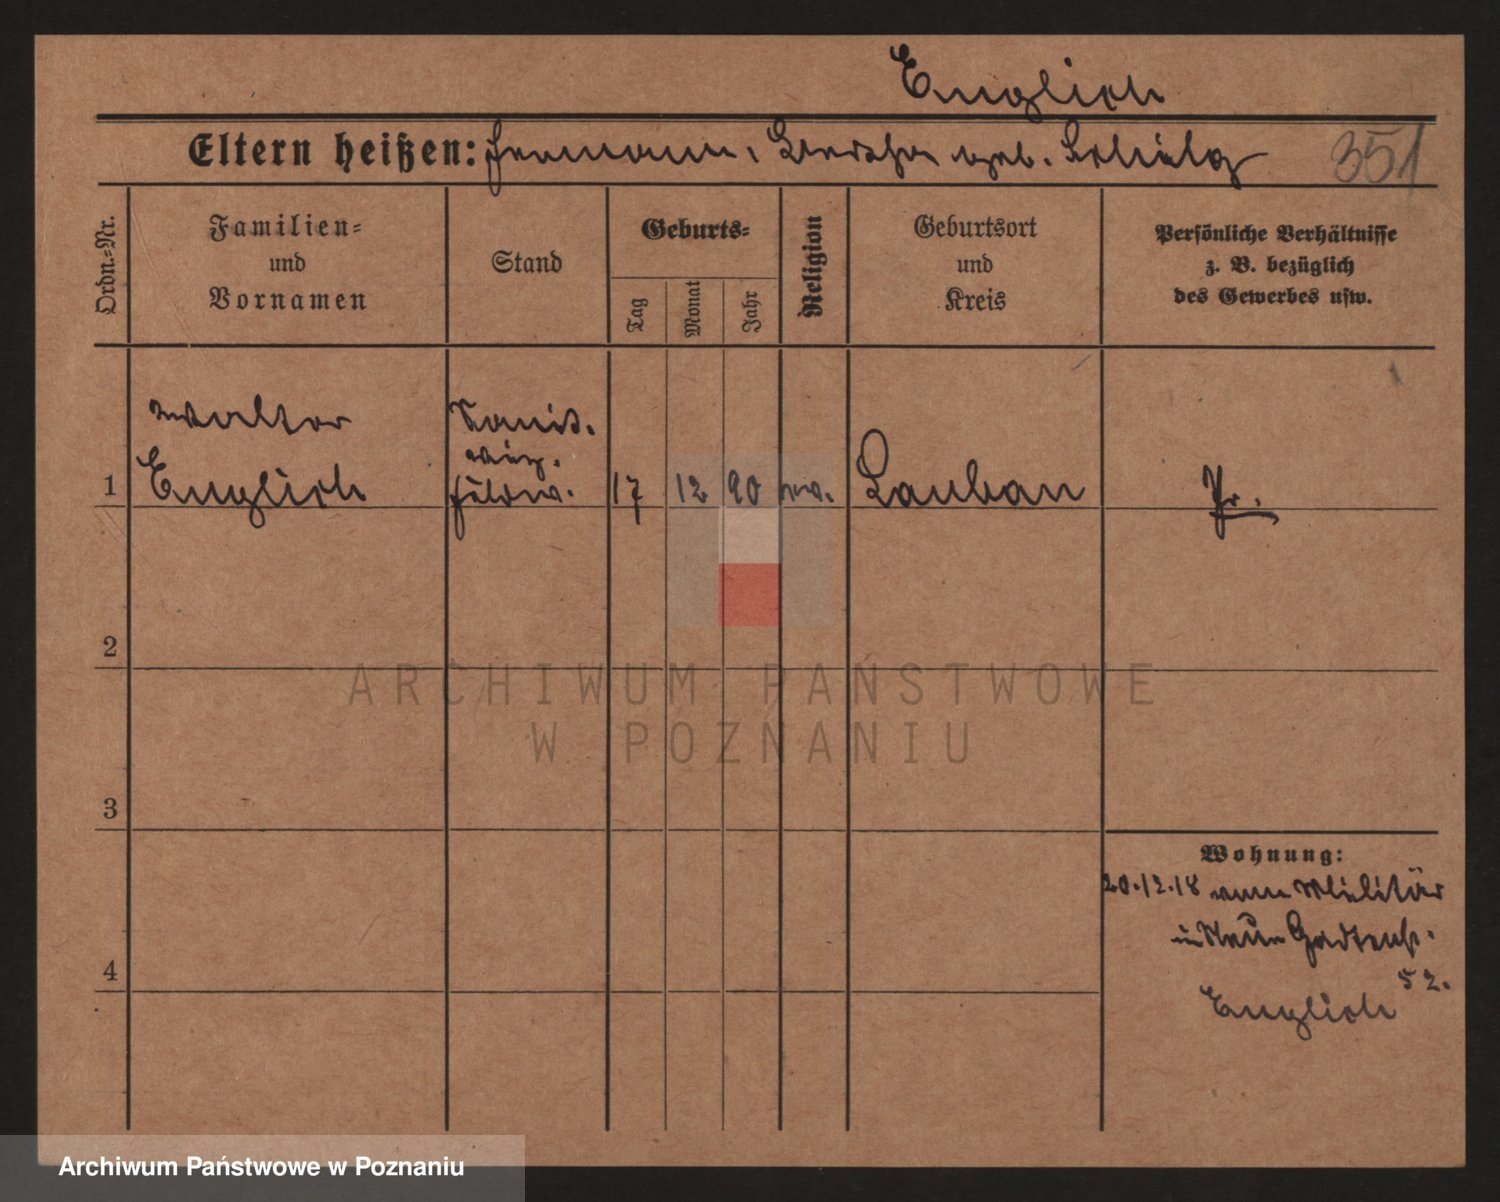 Englich
Eltern heißen: Hermann, Bertha geb. Scholz
351
Ordn.-Nr.
Familien-
und
Vornamen
Stand
Geburts-
Tag
Monat
Jahr
Religion
Geburtsort
und
Kreis
Persönliche Verhältnisse
z. B. bezüglich
des Gewerbes usw.
Walter
Englich
Sanit.
Feldw.
1
17
12
90
ev.
Lauban
Pr.
2
3
4
Wohnung:
20.12.18 vom Militär
Neue Gartenstr.
52.
Englich
ARCHIWUM PAŃSTWOWE
W POZNANIU
Archiwum Państwowe w Poznaniu